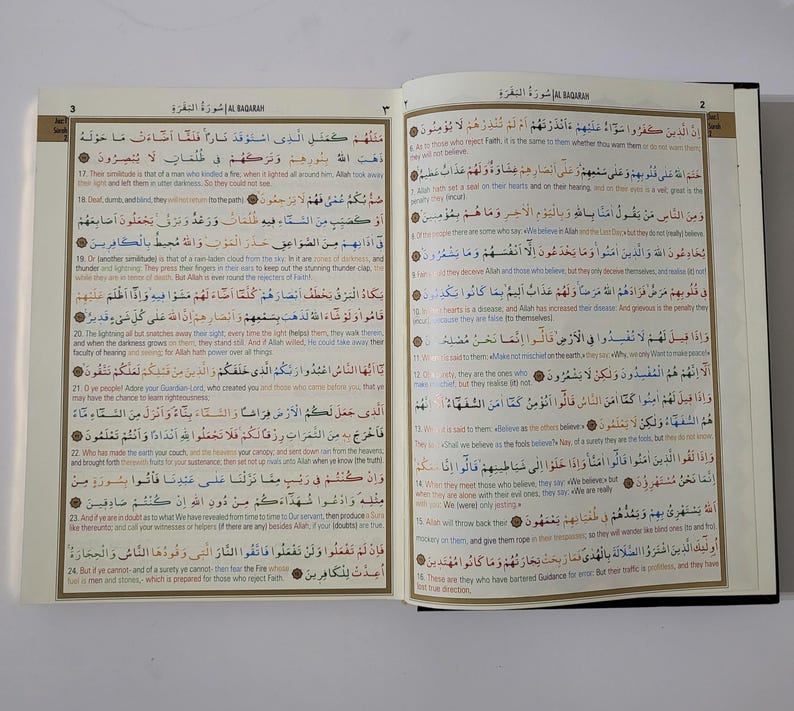 سُورَةُ البَقَرَةِ | AL BAQARAH
2
Juz:1
Sûrah
2
إِنَّ الَّذِينَ كَفَرُوا سَوَاءٌ عَلَيْهِمْ ءَأَنْذَرْتَهُمْ أَمْ لَمْ تُنْذِرْهُمْ لَا يُؤْمِنُونَ
6. As to those who reject Faith, it is the same to them whether thou warn them or do not warn them;
they will not believe.
خَتَمَ اللهُ عَلَى قُلُوبِهِمْ وَعَلَى سَمْعِهِمْ وَعَلَى أَبْصَارِهِمْ غِشَاوَةٌ وَلَهُمْ عَذَابٌ عَظِيمٌ
7. Allah hath set a seal on their hearts and on their hearing, and on their eyes is a veil; great is the
penalty they (incur).
وَمِنَ النَّاسِ مَنْ يَقُولُ آمَنَّا بِاللهِ وَبِالْيَوْمِ الْآخِرِ وَمَا هُمْ بِمُؤْمِنِينَ
8. Of the people there are some who say: «We believe in Allah and the Last Day;» but they do not (really) believe.
يُخَادِعُونَ اللهَ وَالَّذِينَ آمَنُوا وَمَا يَخْدَعُونَ إِلَّا أَنْفُسَهُمْ وَمَا يَشْعُرُونَ
9. Fain would they deceive Allah and those who believe, but they only deceive themselves, and realise (it) not!
فِي قُلُوبِهِمْ مَرَضٌ فَزَادَهُمُ اللهُ مَرَضًا وَلَهُمْ عَذَابٌ أَلِيمٌ بِمَا كَانُوا يَكْذِبُونَ
10. In their hearts is a disease; and Allah has increased their disease: And grievous is the penalty they
(incur), because they are false (to themselves).
وَإِذَا قِيلَ لَهُمْ لَا تُفْسِدُوا فِي الْأَرْضِ قَالُوا إِنَّمَا نَحْنُ مُصْلِحُونَ
11. When it is said to them: «Make not mischief on the earth,» they say: «Why, we only Want to make peace!»
أَلَا إِنَّهُمْ هُمُ الْمُفْسِدُونَ وَلَكِنْ لَا يَشْعُرُونَ 12. Of a surety, they are the ones who
make mischief, but they realise (it) not.
وَإِذَا قِيلَ لَهُمْ آمِنُوا كَمَا آمَنَ النَّاسُ قَالُوا أَنُؤْمِنُ كَمَا آمَنَ السُّفَهَاءُ أَلَا إِنَّهُمْ
هُمُ السُّفَهَاءُ وَلَكِنْ لَا يَعْلَمُونَ 13. When it is said to them: «Believe as the others believe:»
They say: «Shall we believe as the fools believe?» Nay, of a surety they are the fools, but they do not know.
وَإِذَا لَقُوا الَّذِينَ آمَنُوا قَالُوا آمَنَّا وَإِذَا خَلَوْا إِلَى شَيَاطِينِهِمْ قَالُوا إِنَّا مَعَكُمْ
إِنَّمَا نَحْنُ مُسْتَهْزِؤُنَ 14. When they meet those who believe, they say: «We believe;» but
when they are alone with their evil ones, they say: «We are really
with you: We (were) only jesting.»
اَللهُ يَسْتَهْزِئُ بِهِمْ وَيَمُدُّهُمْ فِي طُغْيَانِهِمْ يَعْمَهُونَ 15. Allah will throw back their
mockery on them, and give them rope in their trespasses; so they will wander like blind ones (to and fro).
أُولَئِكَ الَّذِينَ اشْتَرَوُا الضَّلَالَةَ بِالْهُدَى فَمَا رَبِحَتْ تِجَارَتُهُمْ وَمَا كَانُوا مُهْتَدِينَ
16. These are they who have bartered Guidance for error: But their traffic is profitless, and they have
lost true direction,
3
سُورَةُ البَقَرَةِ | AL BAQARAH
٣
Juz:1
Sûrah
2
مَثَلُهُمْ كَمَثَلِ الَّذِي اسْتَوْقَدَ نَارًا فَلَمَّا أَضَاءَتْ مَا حَوْلَهُ
ذَهَبَ اللهُ بِنُورِهِمْ وَتَرَكَهُمْ فِي ظُلُمَاتٍ لَا يُبْصِرُونَ
17. Their similitude is that of a man who kindled a fire; when it lighted all around him, Allah took away
their light and left them in utter darkness. So they could not see.
صُمٌّ بُكْمٌ عُمْيٌ فَهُمْ لَا يَرْجِعُونَ 18. Deaf, dumb, and blind, they will not return (to the path)
أَوْ كَصَيِّبٍ مِنَ السَّمَاءِ فِيهِ ظُلُمَاتٌ وَرَعْدٌ وَبَرْقٌ يَجْعَلُونَ أَصَابِعَهُمْ
فِي آذَانِهِمْ مِنَ الصَّوَاعِقِ حَذَرَ الْمَوْتِ وَاللهُ مُحِيطٌ بِالْكَافِرِينَ
19. Or (another similitude) is that of a rain-laden cloud from the sky: In it are zones of darkness, and
thunder and lightning: They press their fingers in their ears to keep out the stunning thunder-clap, the
while they are in terror of death. But Allah is ever round the rejecters of Faith!.
يَكَادُ الْبَرْقُ يَخْطَفُ أَبْصَارَهُمْ كُلَّمَا أَضَاءَ لَهُمْ مَشَوْا فِيهِ وَإِذَا أَظْلَمَ عَلَيْهِمْ
قَامُوا وَلَوْ شَاءَ اللهُ لَذَهَبَ بِسَمْعِهِمْ وَأَبْصَارِهِمْ إِنَّ اللهَ عَلَى كُلِّ شَيْءٍ قَدِيرٌ
20. The lightning all but snatches away their sight; every time the light (helps) them, they walk therein,
and when the darkness grows on them, they stand still. And if Allah willed, He could take away their
faculty of hearing and seeing; for Allah hath power over all things.
يَا أَيُّهَا النَّاسُ اعْبُدُوا رَبَّكُمُ الَّذِي خَلَقَكُمْ وَالَّذِينَ مِنْ قَبْلِكُمْ لَعَلَّكُمْ تَتَّقُونَ
21. O ye people! Adore your Guardian-Lord, who created you and those who came before you; that ye
may have the chance to learn righteousness;
اَلَّذِي جَعَلَ لَكُمُ الْأَرْضَ فِرَاشًا وَالسَّمَاءَ بِنَاءً وَأَنْزَلَ مِنَ السَّمَاءِ مَاءً
فَأَخْرَجَ بِهِ مِنَ الثَّمَرَاتِ رِزْقًا لَكُمْ فَلَا تَجْعَلُوا لِلَّهِ أَنْدَادًا وَأَنْتُمْ تَعْلَمُونَ
22. Who has made the earth your couch, and the heavens your canopy; and sent down rain from the heavens;
and brought forth therewith fruits for your sustenance; then set not up rivals unto Allah when ye know (the truth).
وَإِنْ كُنْتُمْ فِي رَيْبٍ مِمَّا نَزَّلْنَا عَلَى عَبْدِنَا فَأْتُوا بِسُورَةٍ مِنْ
مِثْلِهِ وَادْعُوا شُهَدَاءَكُمْ مِنْ دُونِ اللهِ إِنْ كُنْتُمْ صَادِقِينَ
23. And if ye are in doubt as to what We have revealed from time to time to Our servant, then produce a Sura
like thereunto; and call your witnesses or helpers (if there are any) besides Allah, if your (doubts) are true.
فَإِنْ لَمْ تَفْعَلُوا وَلَنْ تَفْعَلُوا فَاتَّقُوا النَّارَ الَّتِي وَقُودُهَا النَّاسُ وَالْحِجَارَةُ
أُعِدَّتْ لِلْكَافِرِينَ 24. But if ye cannot- and of a surety ye cannot- then fear the Fire whose
fuel is men and stones,- which is prepared for those who reject Faith.